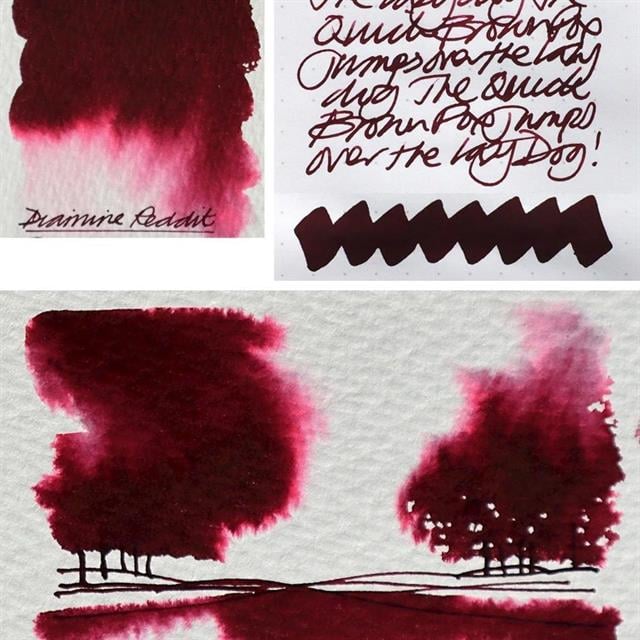 Diamine Reddit
Quick Brown Fox
Jumps over the lazy
dog The Quick
Brown Fox Jumps
over the lazy Dog!